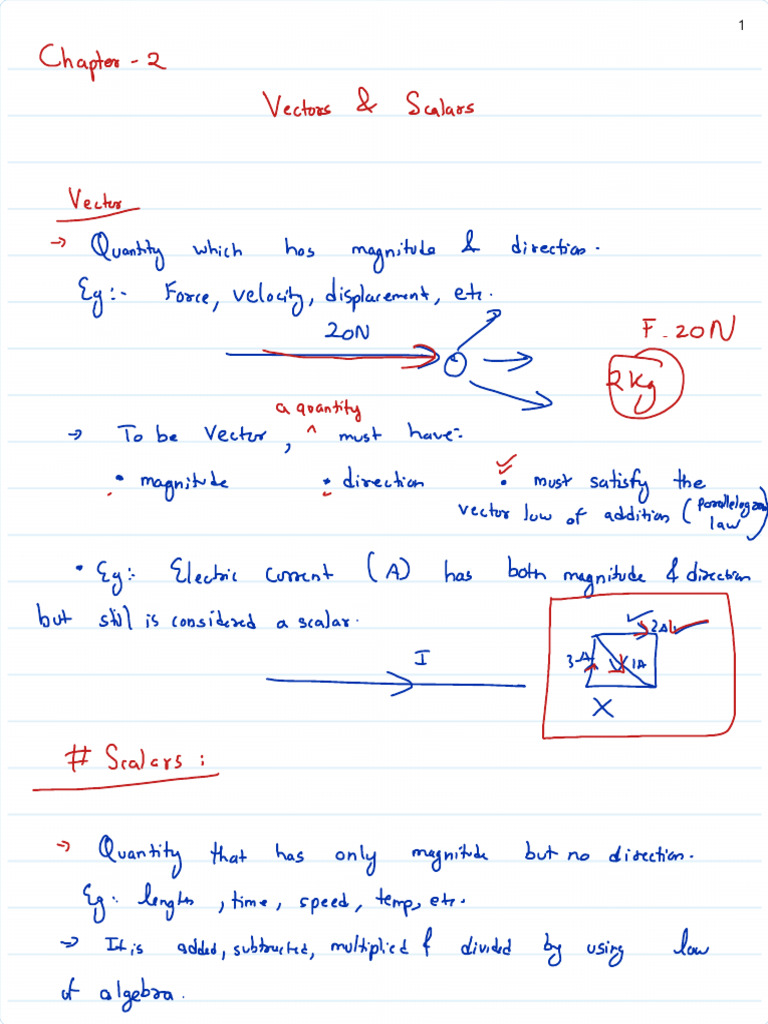 1
Chapter - 2
Vectors & Scalars
Vector
→ Quantity which has magnitude & direction.
Eg:- Force, velocity, displacement, etc.
20N
F = 20N
2kg
a quantity
→ To be Vector, ^ must have:-
• magnitude • direction • must satisfy the
vector law of addition (parallelogram
law)
• Eg:- Electric current (A) has both magnitude & direction
but still is considered a scalar.
I
3A 2A 1A
X
# Scalars :
→ Quantity that has only magnitude but no direction.
Eg: length, time, speed, temp, etc.
→ It is added, subtracted, multiplied & divided by using law
of algebra.